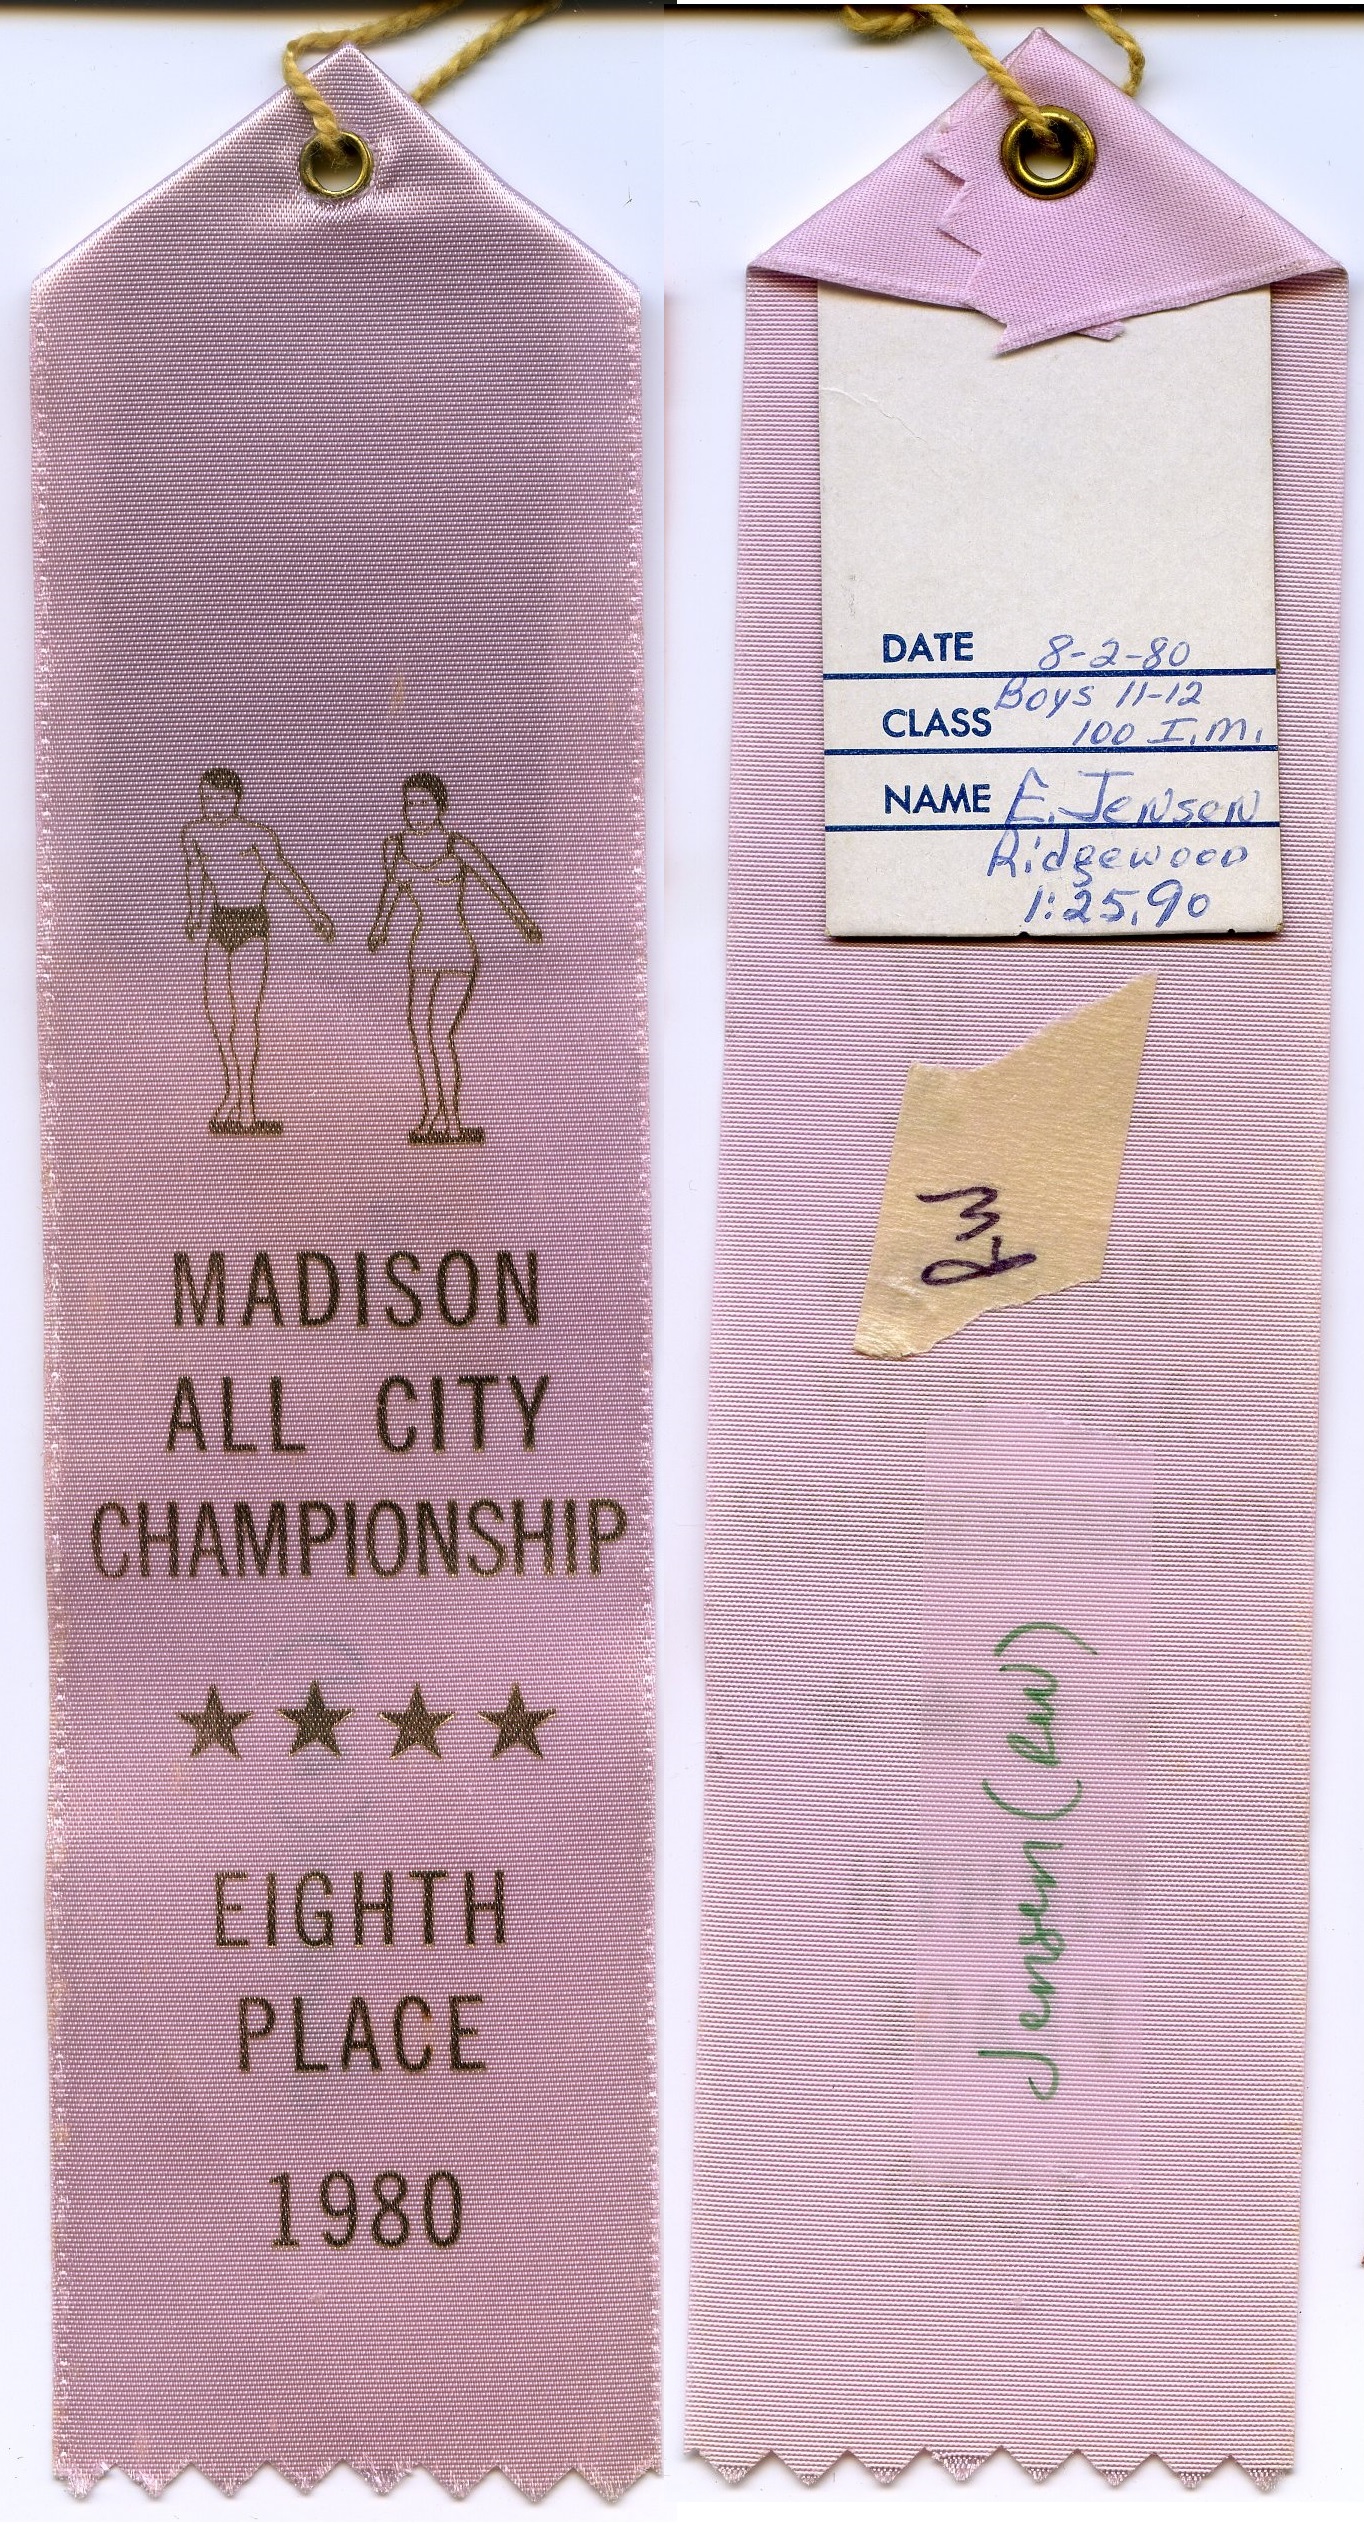 MADISON
ALL CITY
CHAMPIONSHIP
EIGHTH
PLACE
1980
DATE 8-2-80
CLASS Boys 11-12
100 I.M.
NAME E. Jensen
Ridgewood
1:25.90
RW
Jensen (RW)